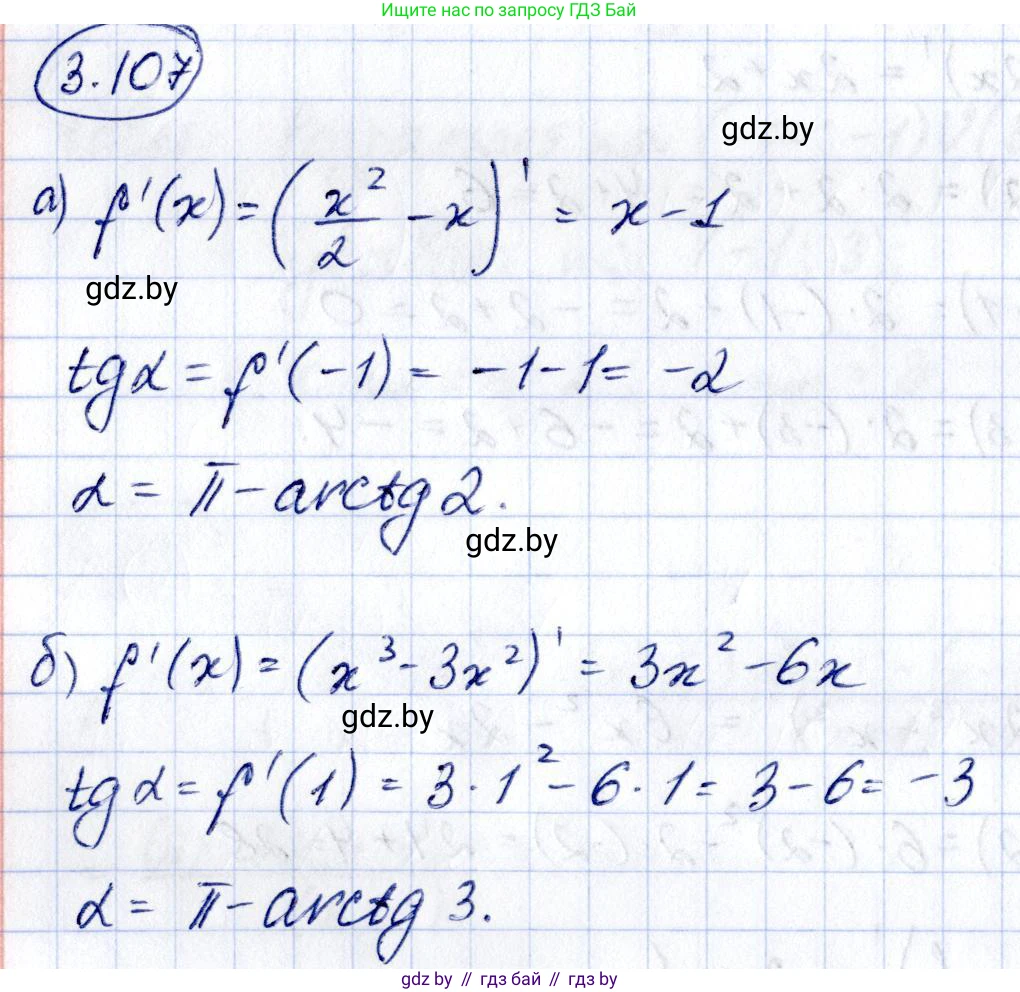 Ищите нас по запросу ГДЗ Бай
3.107
gdz.by
а) f'(x) = (x²/2 - x)' = x - 1
gdz.by
tg α = f'(-1) = -1 - 1 = -2
α = π - arctg 2.
gdz.by
б) f'(x) = (x³ - 3x²)' = 3x² - 6x
gdz.by
tg α = f'(1) = 3 · 1² - 6 · 1 = 3 - 6 = -3
α = π - arctg 3.
gdz.by // гдз бай // gdz.by